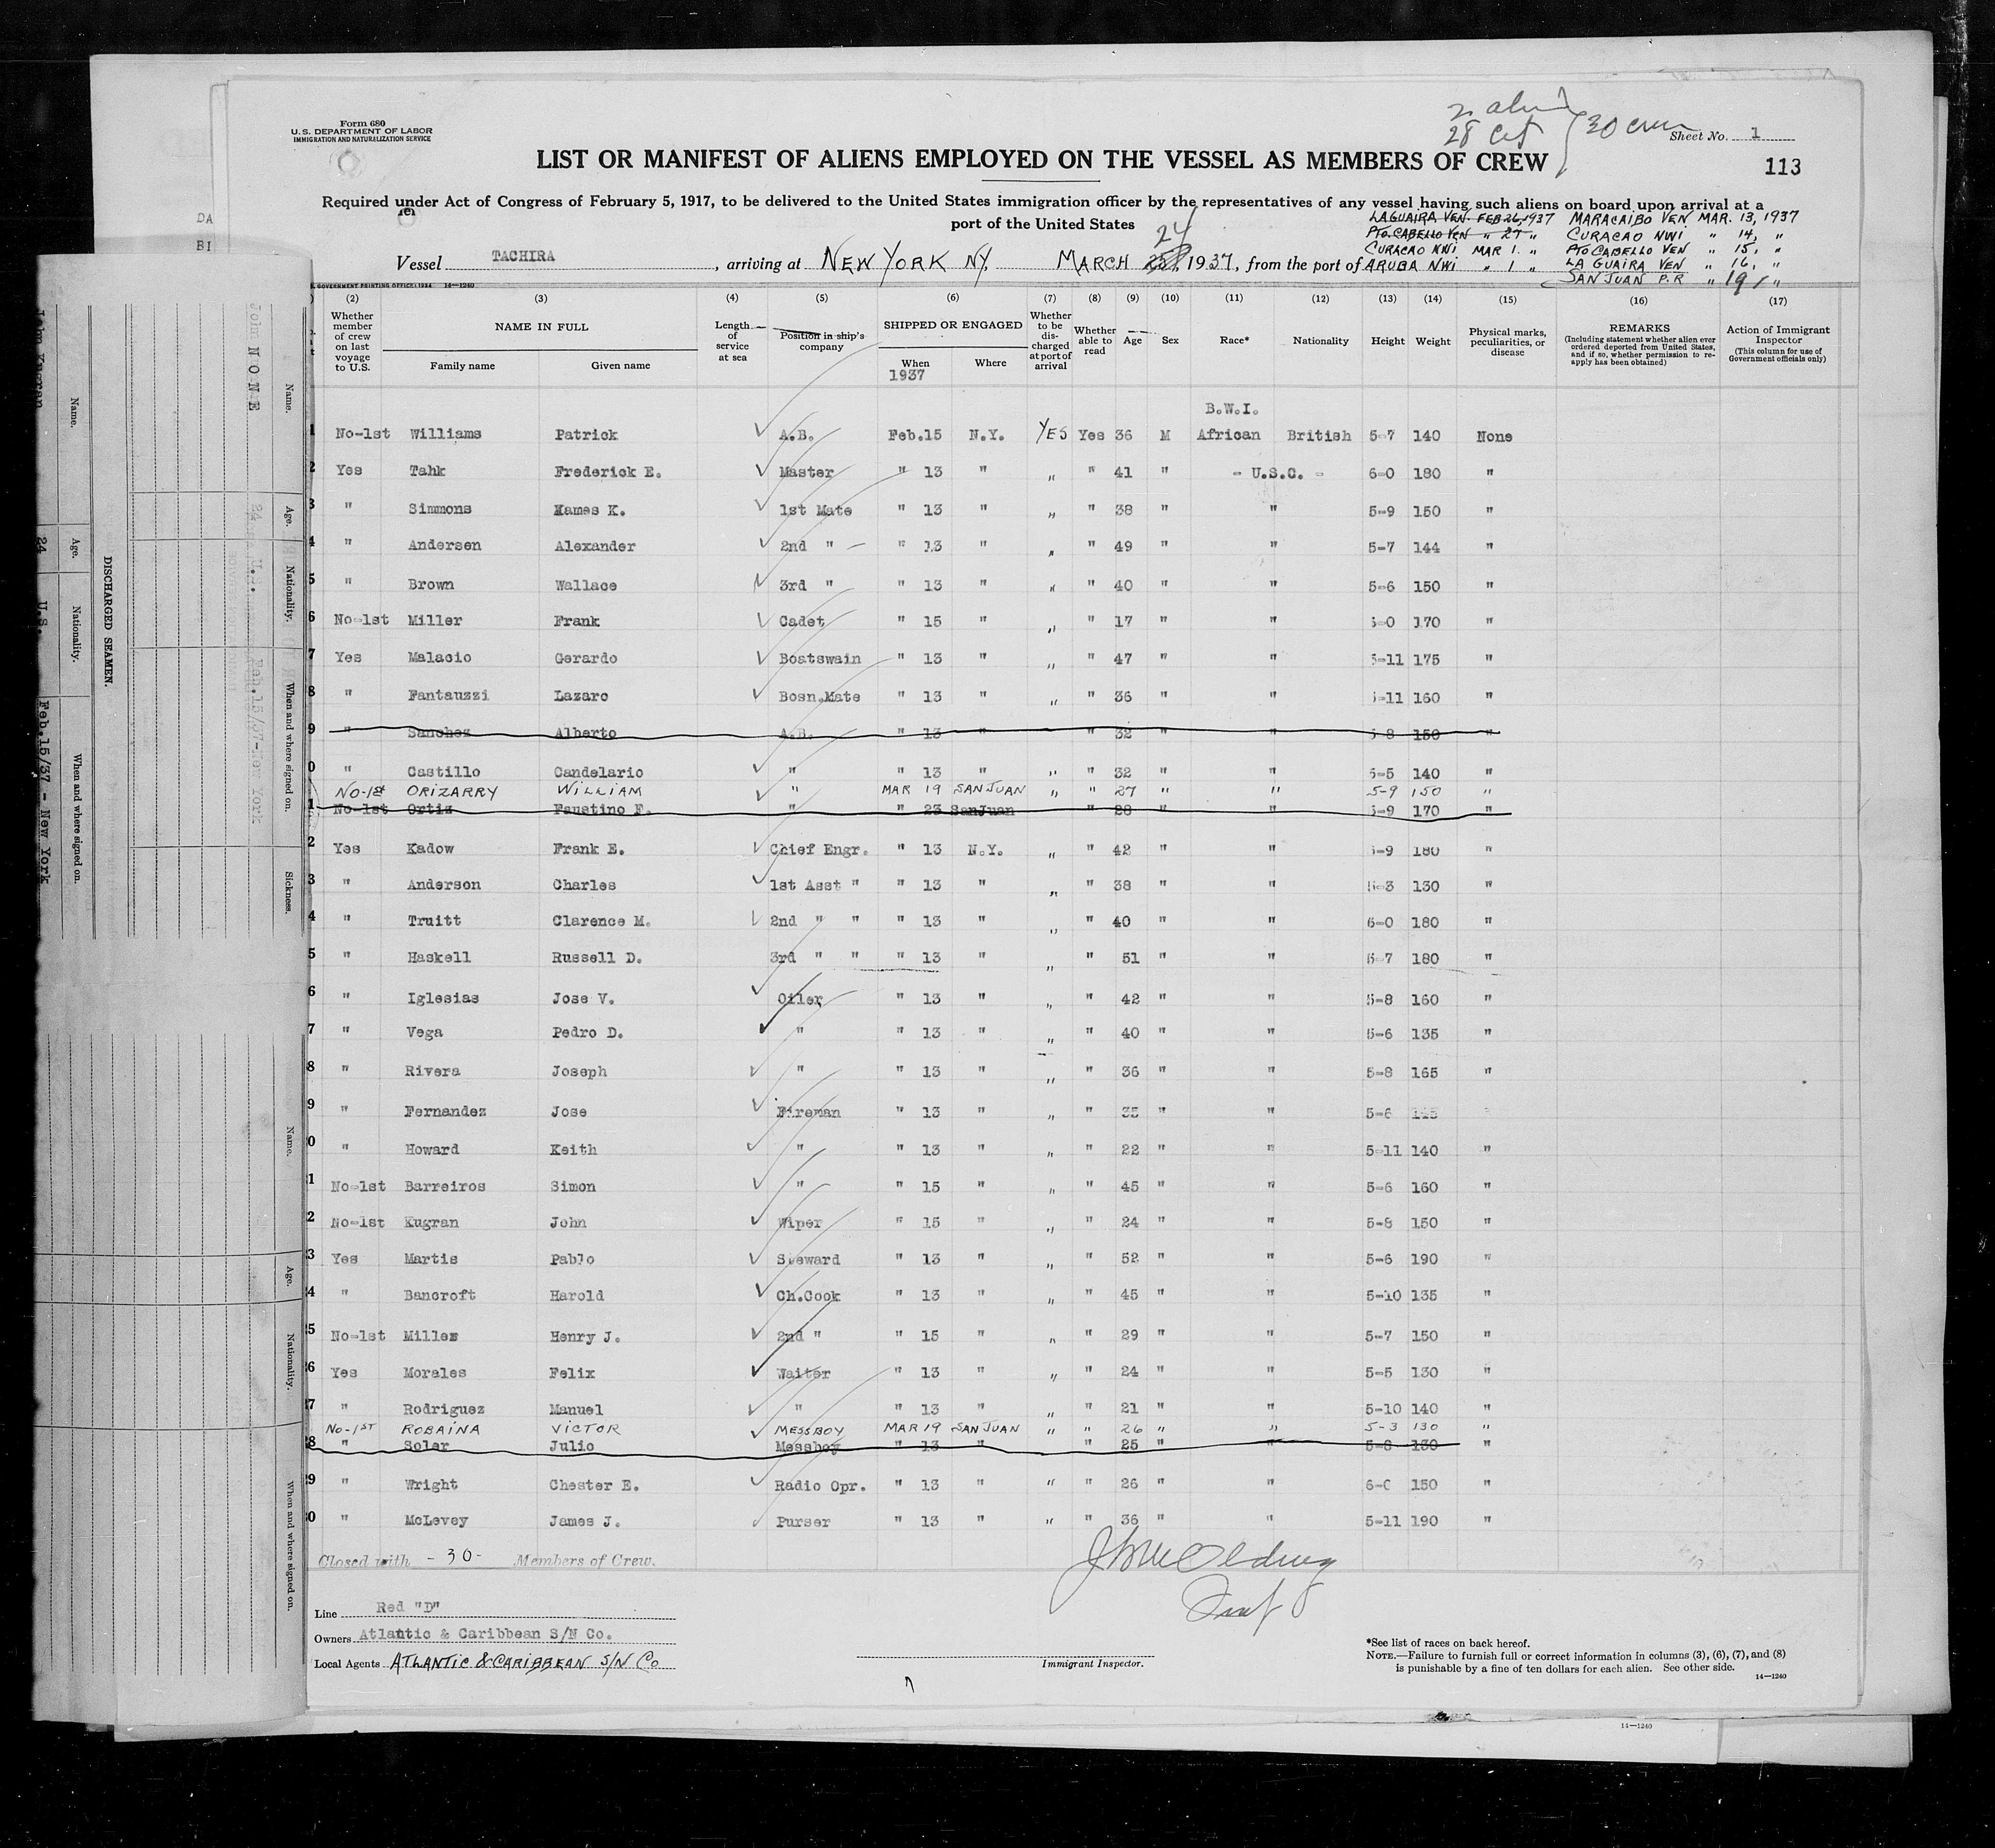 Form 680
U.S. DEPARTMENT OF LABOR
IMMIGRATION AND NATURALIZATION SERVICE
28
30 crew
Sheet No. 1
LIST OR MANIFEST OF ALIENS EMPLOYED ON THE VESSEL AS MEMBERS OF CREW
113
Required under Act of Congress of February 5, 1917, to be delivered to the United States immigration officer by the representatives of any vessel having such aliens on board upon arrival at a
port of the United States
LA GUAIRA VEN. FEB 26, 1937 MARACAIBO VEN MAR. 13, 1937
PTO. CABELLO VEN " 27 " CURACAO NWI " 14, "
CURACAO NWI MAR 1. " PTO CABELLO VEN " 15, "
ARUBA NWI " 1 " LA GUAIRA VEN " 16, "
SAN JUAN P.R " 19 "
Vessel TACHIRA, arriving at NEW YORK NY, MARCH 24, 1937, from the port of
GOVERNMENT PRINTING OFFICE: 1934 14—1240
(2) (3) (4) (5) (6) (7) (8) (9) (10) (11) (12) (13) (14) (15) (16) (17)
Whether member of crew on last voyage to U.S.
NAME IN FULL
Family name Given name
Length of service at sea
Position in ship's company
SHIPPED OR ENGAGED
When Where
1937
Whether to be discharged at port of arrival
Whether able to read
Age
Sex
Race*
Nationality
Height
Weight
Physical marks, peculiarities, or disease
REMARKS
(Including statement whether alien ever ordered deported from United States, and if so, whether permission to reapply has been obtained)
Action of Immigrant Inspector
(This column for use of Government officials only)
B.W.I.
1 No-1st Williams Patrick A.B. Feb.15 N.Y. YES Yes 36 M African British 5-7 140 None
2 Yes Tahk Frederick E. Master " 13 " " " 41 " - U.S.C. - 6-0 180 "
3 " Simmons Hames K. 1st Mate " 13 " " " 38 " " 5-9 150 "
4 " Andersen Alexander 2nd " " 13 " " " 49 " " 5-7 144 "
5 " Brown Wallace 3rd " " 13 " " " 40 " " 5-6 150 "
6 No-1st Miller Frank Cadet " 15 " " " 17 " " -0 170 "
7 Yes Malacio Gerardo Boatswain " 13 " " " 47 " " -11 175 "
8 " Fantauzzi Lazaro Bosn.Mate " 13 " " " 36 " " -11 160 "
9 " Sanchez Alberto A.B. " 13 " " 32 " " -8 150 "
0 " Castillo Candelario " " 13 " " " 32 " " 5-5 140 "
NO-1st ORIZARRY WILLIAM " MAR 19 SAN JUAN " " 27 " " 5-9 150 "
1 No-1st Ortiz Faustino F. " " 23 SanJuan " 28 " " 5-9 170 "
2 Yes Kadow Frank E. Chief Engr. " 13 N.Y. " " 42 " " -9 180 "
3 " Anderson Charles 1st Asst " " 13 " " " 38 " " -3 130 "
4 " Truitt Clarence M. 2nd " " " 13 " " " 40 " " 6-0 180 "
5 " Haskell Russell D. 3rd " " " 13 " " " 51 " " 5-7 180 "
6 " Iglesias Jose V. Oiler " 13 " " " 42 " " 5-8 160 "
7 " Vega Pedro D. " " 13 " " " 40 " " 5-6 135 "
8 " Rivera Joseph " " 13 " " " 36 " " 5-8 165 "
9 " Fernandez Jose Fireman " 13 " " " 35 " " 5-6
0 " Howard Keith " " 13 " " " 22 " " 5-11 140 "
1 No-1st Barreiros Simon " " 15 " " " 45 " " 5-6 160 "
2 No-1st Kugran John Wiper " 15 " " " 24 " " 5-8 150 "
3 Yes Martis Pablo Steward " 13 " " " 52 " " 5-6 190 "
4 " Bancroft Harold Ch.Cook " 13 " " " 45 " " 5-10 135 "
5 No-1st Miller Henry J. 2nd " " 15 " " " 29 " " 5-7 150 "
6 Yes Morales Felix Waiter " 13 " " " 24 " " 5-5 130 "
7 " Rodriguez Manuel " " 13 " " " 21 " " 5-10 140 "
NO-1ST ROBAINA VICTOR MESSBOY MAR 19 SAN JUAN " " 26 " " 5-3 130 "
8 " Soler Julio Messboy " 13 " " 25 " " 5-8 130 "
29 " Wright Chester E. Radio Opr. " 13 " " " 26 " " 6-0 150 "
30 " McLevey James J. Purser " 13 " " " 36 " " 5-11 190 "
Closed with - 30 - Members of Crew.
Line Red "D"
Owners Atlantic & Caribbean S/N Co.
Local Agents ATLANTIC & CARIBBEAN S/N CO
Immigrant Inspector.
*See list of races on back hereof.
NOTE.—Failure to furnish full or correct information in columns (3), (6), (7), and (8)
is punishable by a fine of ten dollars for each alien. See other side.
14—1240
14—1240
DA
BI
DISCHARGED SEAMEN.
Name. Age. Nationality. When and where signed on.
24 U.S. Feb.15/37 - New York
Name. Age. Nationality. When and where signed on. Sickness.
John NONE 24 U.S. Feb.15/37-New York
Name. Age. Nationality. When and where signed on.